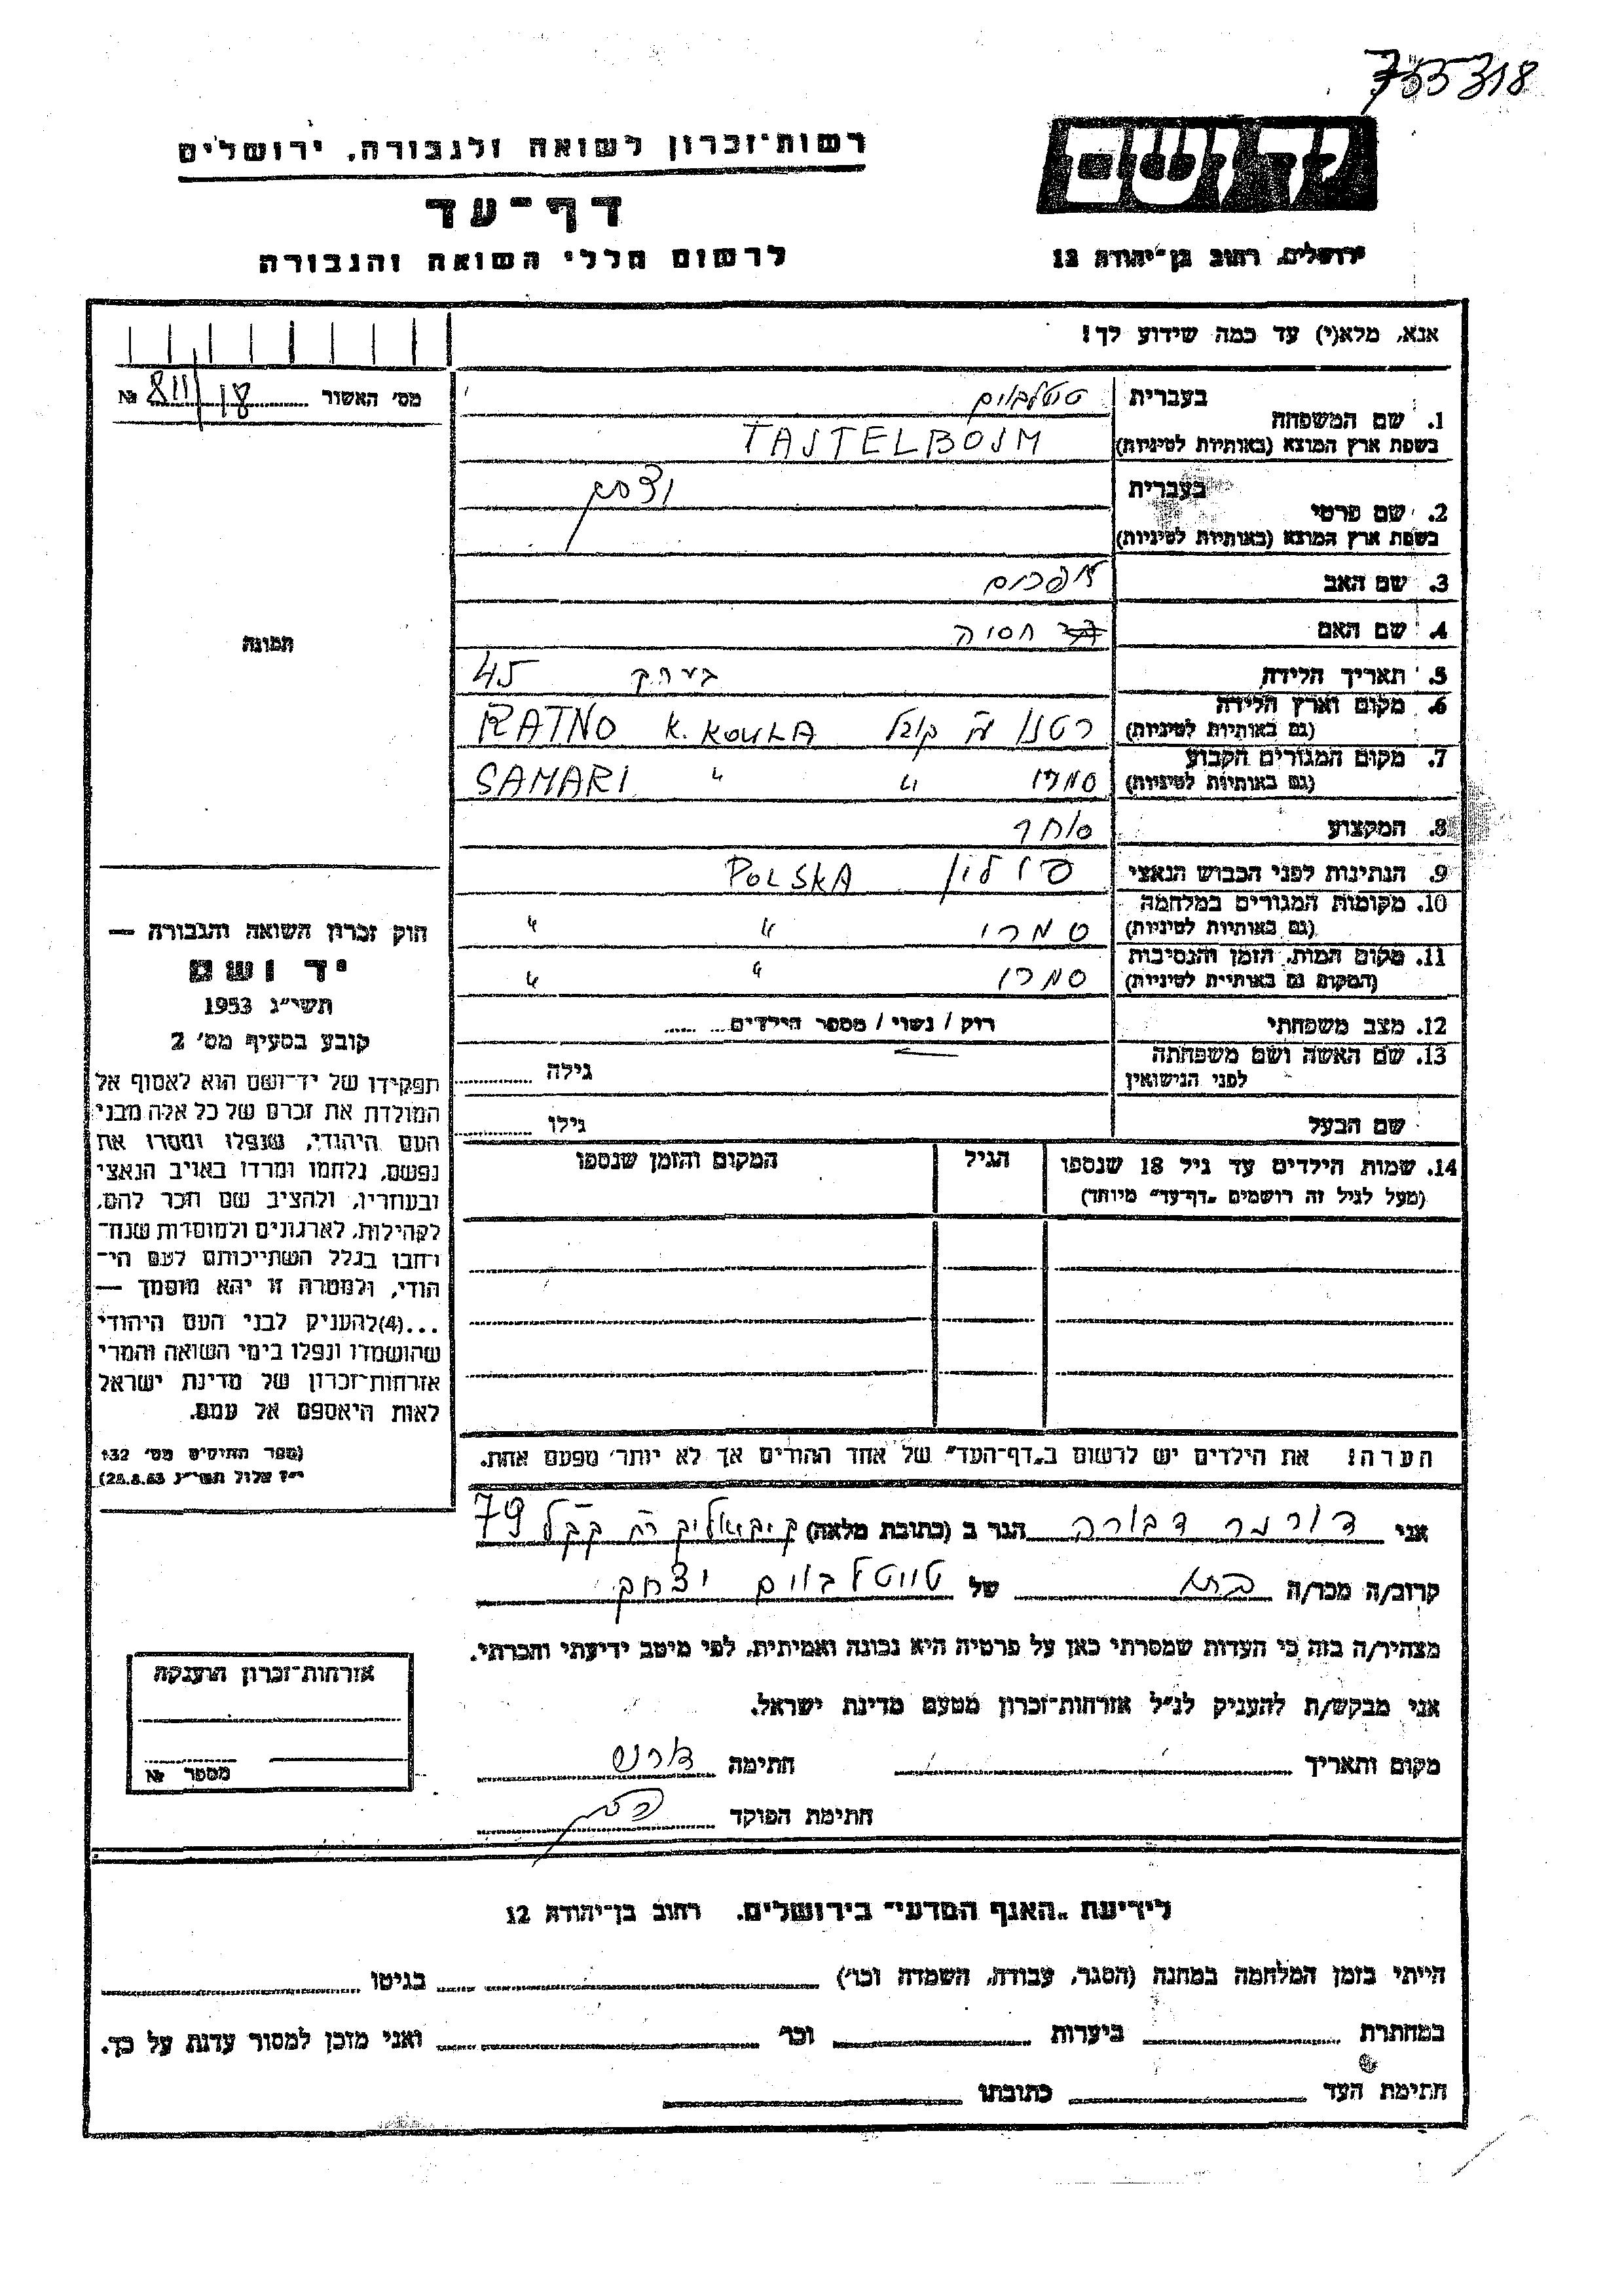 755318
רשות־זכרון לשואה ולגבורה, ירושלים
יד ושם
דף־עד
לרשום חללי השואה והגבורה
ירושלים, רחוב בן־יהודה 12
אנא, מלא(י) עד כמה שידוע לך!
מס' האשור 18/811 №
1. שם המשפחה
בעברית טטלבוים
בשפת ארץ המוצא (באותיות לטיניות) TAJTELBOJM
2. שם פרטי
בעברית יצחק
בשפת ארץ המוצא (באותיות לטיניות)
3. שם האב אפרים
4. שם האם חסיה
5. תאריך הלידה בערך 45
6. מקום וארץ הלידה
(גם באותיות לטיניות) רטנו ע"י קובל K. KOULA RATNO
7. מקום המגורים הקבוע
(גם באותיות לטיניות) סמרי " " SAMARI
8. המקצוע סוחר
9. הנתינות לפני הכבוש הנאצי פולין POLSKA
10. מקומות המגורים במלחמה
(גם באותיות לטיניות) סמרי " "
11. מקום המות, הזמן והנסיבות
(המקום גם באותיות לטיניות) סמרי " "
12. מצב משפחתי רוק / נשוי / מספר הילדים
13. שם האשה ושם משפחתה
לפני הנישואין גילה
שם הבעל גילו
14. שמות הילדים עד גיל 18 שנספו הגיל המקום והזמן שנספו
(מעל לגיל זה רושמים „דף־עד" מיוחד)
הערה: את הילדים יש לרשום ב„דף־העד" של אחד ההורים אך לא יותר מפעם אחת.
תמונה
חוק זכרון השואה והגבורה —
יד ושם
תשי"ג 1953
קובע בסעיף מס' 2
תפקידו של יד־ושם הוא לאסוף אל
המולדת את זכרם של כל אלה מבני
העם היהודי, שנפלו ומסרו את
נפשם, נלחמו ומרדו באויב הנאצי
ובעוזריו, ולהציב שם וזכר להם,
לקהילות, לארגונים ולמוסדות שנח־
רחבו בגלל השתייכותם לעם הי־
הודי, ולמטרה זו יהא מוסמך —
...(4)להעניק לבני העם היהודי
שהושמדו ונפלו בימי השואה והמרי
אזרחות־זכרון של מדינת ישראל
לאות היאספם אל עמם.
(ספר החוקים מס' 132
י"ז אלול תשי"ג 28.8.53)
אני דורמר דבורה הגר ב (כתובת מלאה) 79
קרוב/ה מכר/ה בתו של טייטלבוים יצחק
מצהיר/ה בזה כי העדות שמסרתי כאן על פרטיה היא נכונה ואמיתית, לפי מיטב ידיעתי והכרתי.
אני מבקש/ת להעניק לנ"ל אזרחות־זכרון מטעם מדינת ישראל.
מקום ותאריך חתימה
חתימת הפוקד
אזרחות־זכרון הוענקה
מספר №
לידיעת „האגף המדעי" בירושלים, רחוב בן־יהודה 12
הייתי בזמן המלחמה במחנה (הסגר, עבודה, השמדה וכו') בגיטו
במחתרת ביערות וכו' ואני מוכן למסור עדות על כך.
חתימת העד כתובתו